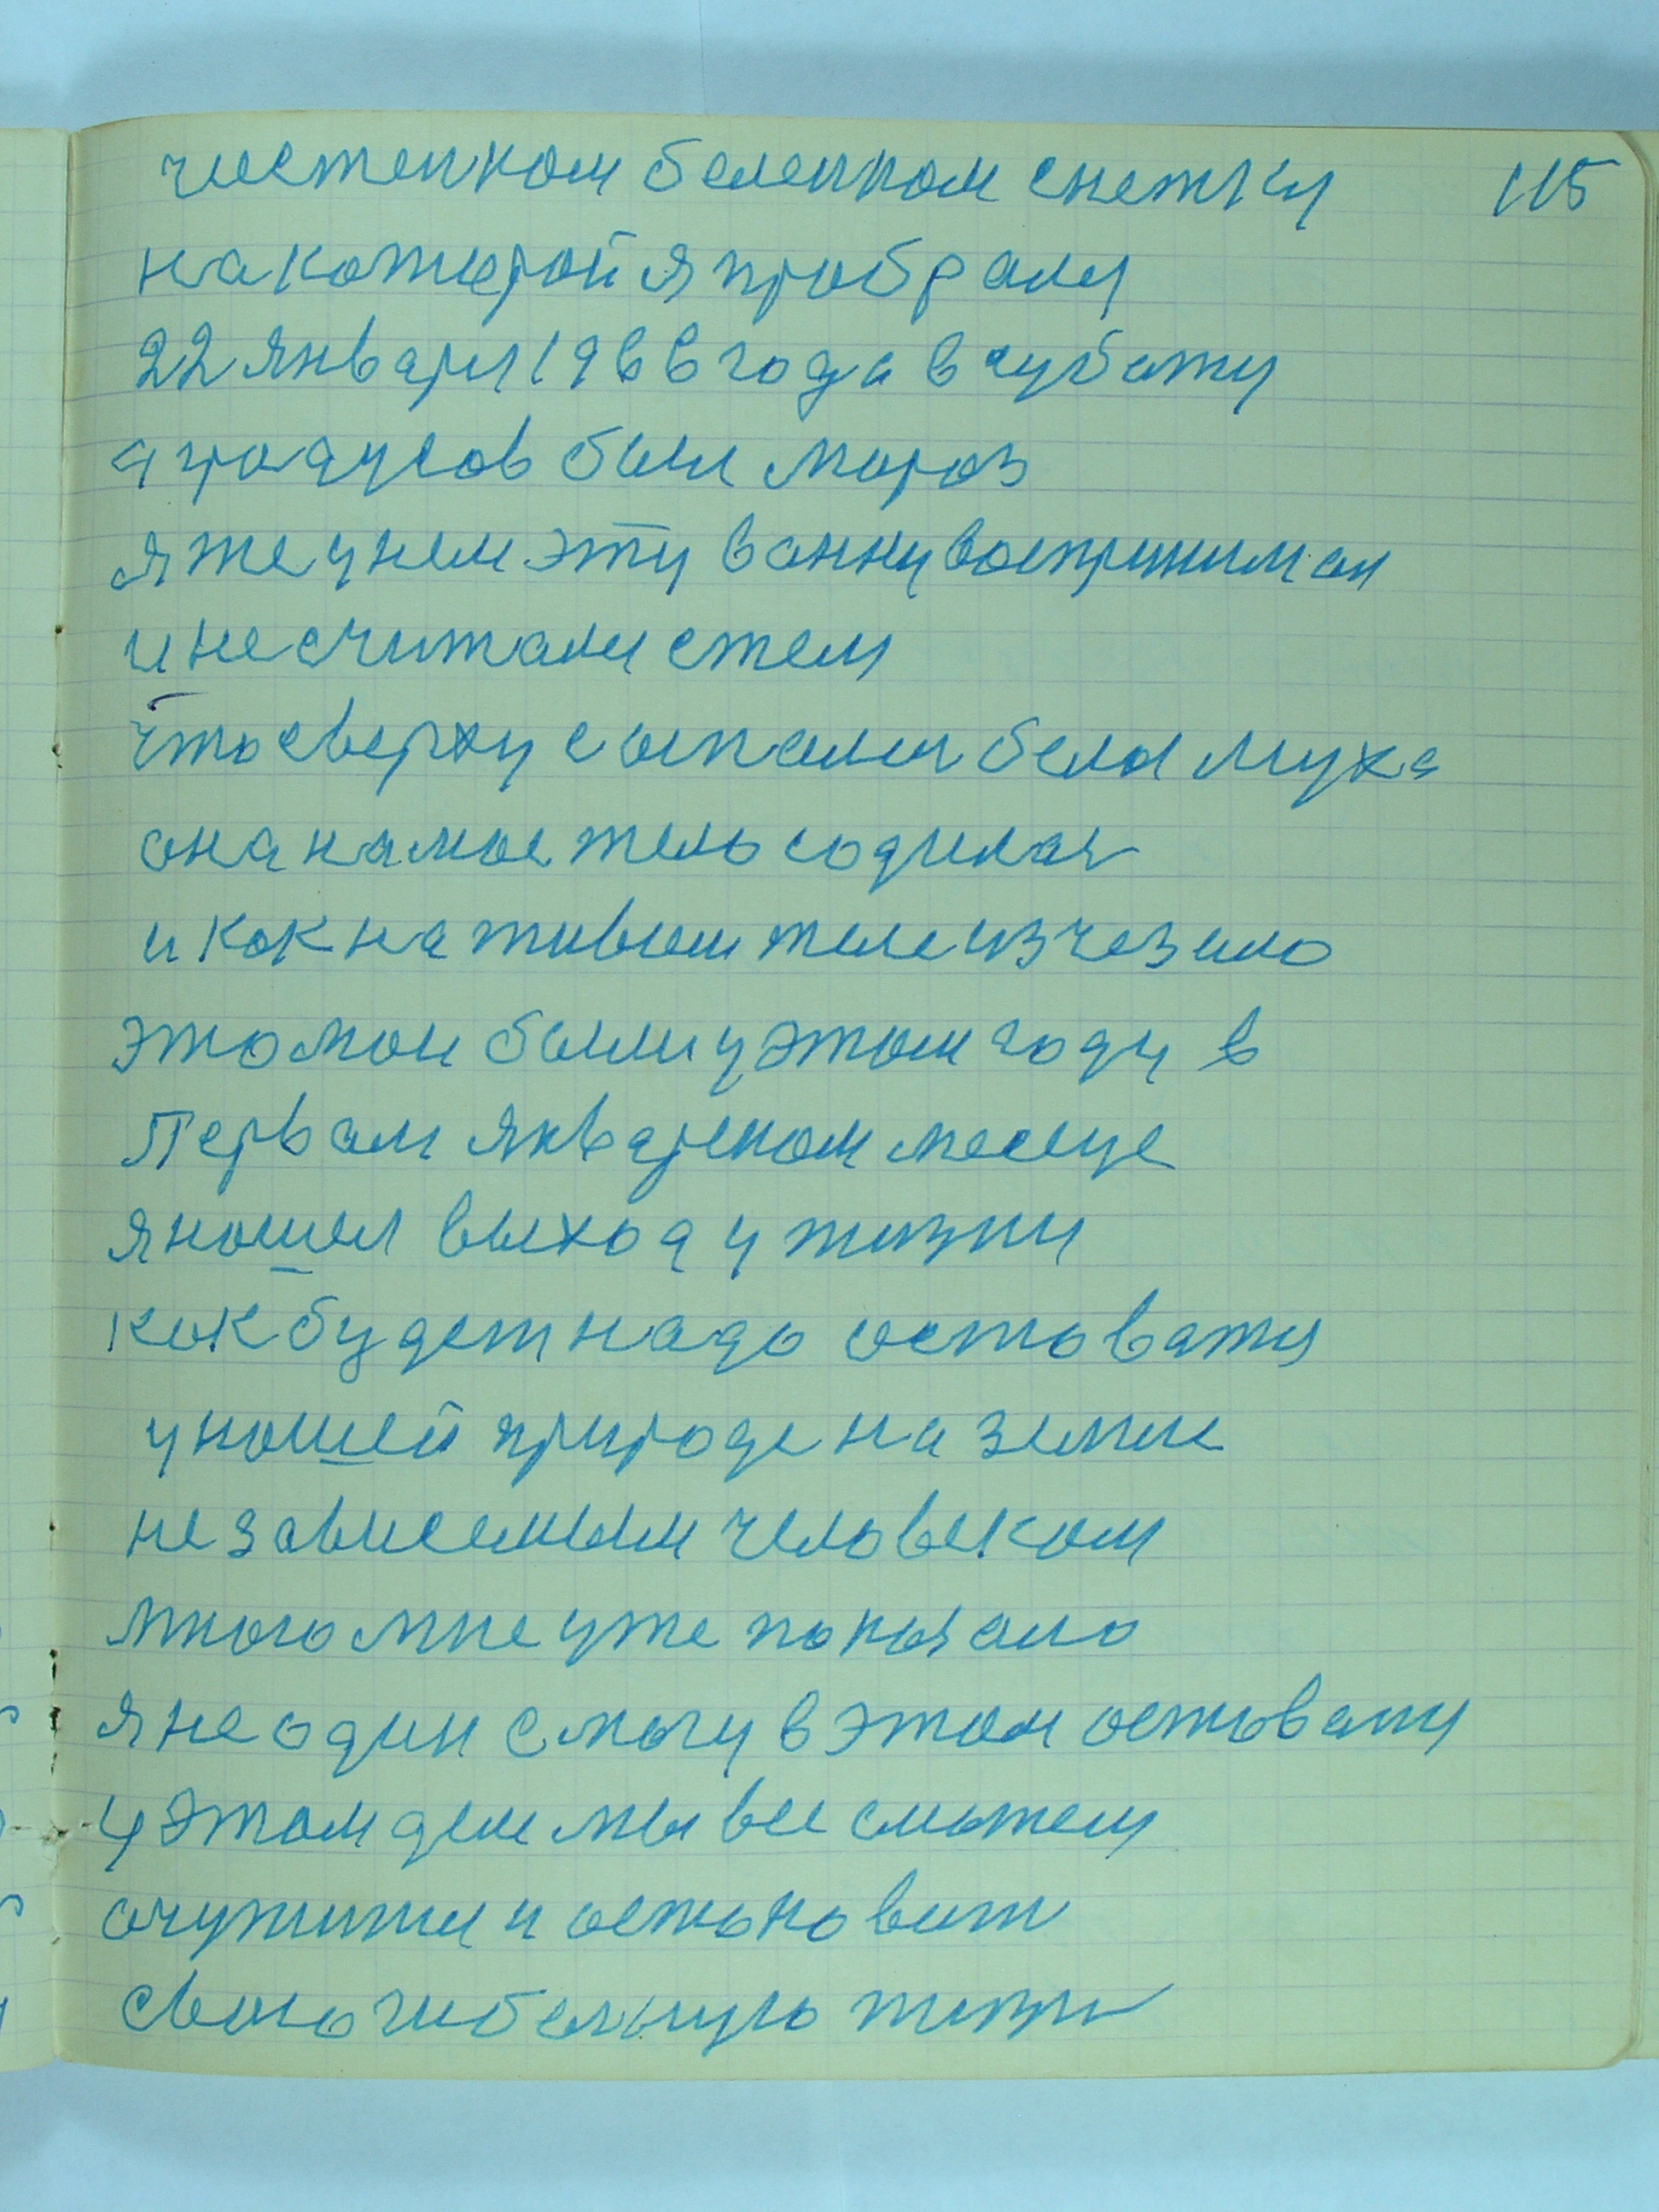 чистенком беленком снежку 115
на которой я пробрали
22 января 1966 года в субату
а градусов был мороз
я же у нем эту ванну воспринимал
и не считали стем
что сверху сыпалы бела муха
она на мое тело содилась
и как на живом теле изчезало
это мои были у этом году в
Первам январском месеце
я нашел выход у жизни
как будет надо оставатя
у нашей природе на земле
не зависемым человеком
много мне уже показало
я не один смогу в этом оставаты
у этом деле мы все сможем
очутитис и остоновит
свою гибельную жизнь